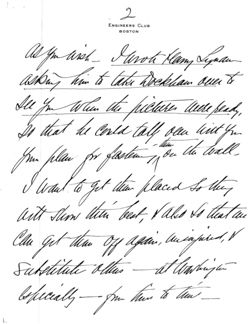 2
ENGINEERS CLUB
BOSTON
As you wish — I wrote Harry Lyman
asking him to take Dockham over to
see you when the pictures were ready,
so that he could talk over with you
your plan for fastening them on the wall.
I want to get them placed so they
will show their best, & also so that we
can get them off again, uninjured, &
substitute others — at Washington
especially — from time to time —